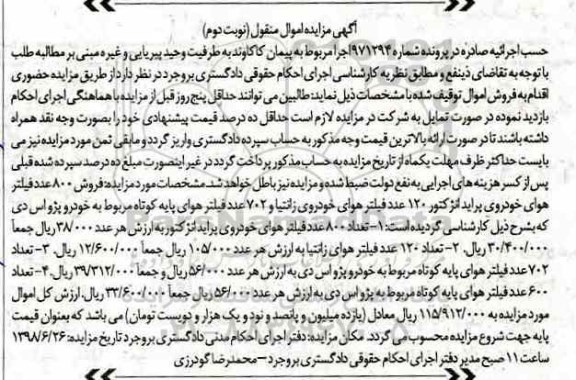 آگهی مزایده اموال منقول (نوبت دوم)
حسب اجرائیه صادره در پرونده شماره ۹۷۱۲۹۴ اجرا مربوط به پیمان کاکاوند به طرفیت وحید پیریایی و غیره مبنی بر مطالبه طلب
با توجه به تقاضای ذینفع و مطابق نظریه کارشناسی اجرای احکام حقوقی دادگستری بروجرد در نظر دارد از طریق مزایده حضوری
اقدام به فروش اموال توقیف شده با مشخصات ذیل نماید: طالبین می توانند حداقل پنج روز قبل از مزایده با هماهنگی اجرای احکام
بازدید نموده در صورت تمایل به شرکت در مزایده لازم است حداقل ده درصد قیمت پیشنهادی خود را بصورت وجه نقد همراه
داشته باشند تا در صورت ارائه بالاترین قیمت وجه مذکور به حساب سپرده دادگستری واریز گردد و مابقی ثمن مورد مزایده نیز می
بایست حداکثر ظرف مهلت یکماه از تاریخ مزایده به حساب مذکور پرداخت گردد در غیر اینصورت مبلغ ده درصد سپرده شده قبلی
پس از کسر هزینه های اجرایی به نفع دولت ضبط شده و مزایده نیز باطل خواهد شد. مشخصات مورد مزایده: فروش ۸۰۰ عدد فیلتر
هوای خودروی پراید انژکتور ۱۲۰ عدد فیلتر هوای خودروی زانتیا و ۷۰۲ عدد فیلتر هوای پایه کوتاه مربوط به خودرو پژو اس دی
که بشرح ذیل کارشناسی گردیده است: ۱- تعداد ۸۰۰ عدد فیلتر هوای خودروی پراید انژکتور به ارزش هر عدد ۳۸/۰۰۰ ریال جمعاً
۳۰/۴۰۰/۰۰۰ ریال. ۲- تعداد ۱۲۰ عدد فیلتر هوای زانتیا به ارزش هر عدد ۱۰۵/۰۰۰ ریال جمعاً ۱۲/۶۰۰/۰۰۰ ریال. ۳- تعداد
۷۰۲ عدد فیلتر هوای پایه کوتاه مربوط به خودرو پژو اس دی به ارزش هر عدد ۵۶/۰۰۰ ریال و جمعاً ۳۹/۳۱۲/۰۰۰ ریال. ۴- تعداد
۶۰۰ عدد فیلتر هوای پایه کوتاه مربوط به پژو اس دی به ارزش هر عدد ۵۶/۰۰۰ ریال جمعاً ۳۳/۶۰۰/۰۰۰ ریال. ارزش کل اموال
مورد مزایده به ۱۱۵/۹۱۲/۰۰۰ ریال معادل (یازده میلیون و پانصد و نود و یک هزار و دویست تومان) می باشد که بعنوان قیمت
پایه جهت شروع مزایده محسوب می گردد. مکان مزایده: دفتر اجرای احکام مدنی دادگستری بروجرد تاریخ مزایده: ۱۳۹۸/۶/۲۶
ساعت ۱۱ صبح مدیر دفتر اجرای احکام حقوقی دادگستری بروجرد – محمدرضا گودرزی